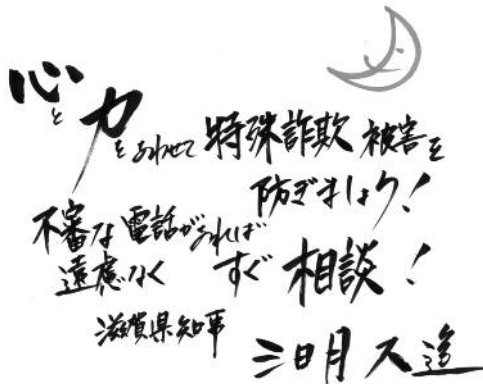 心と力をあわせて特殊詐欺被害を
防ぎましょう!
不審な電話があれば
遠慮なくすぐ相談!
滋賀県知事
三日月大造